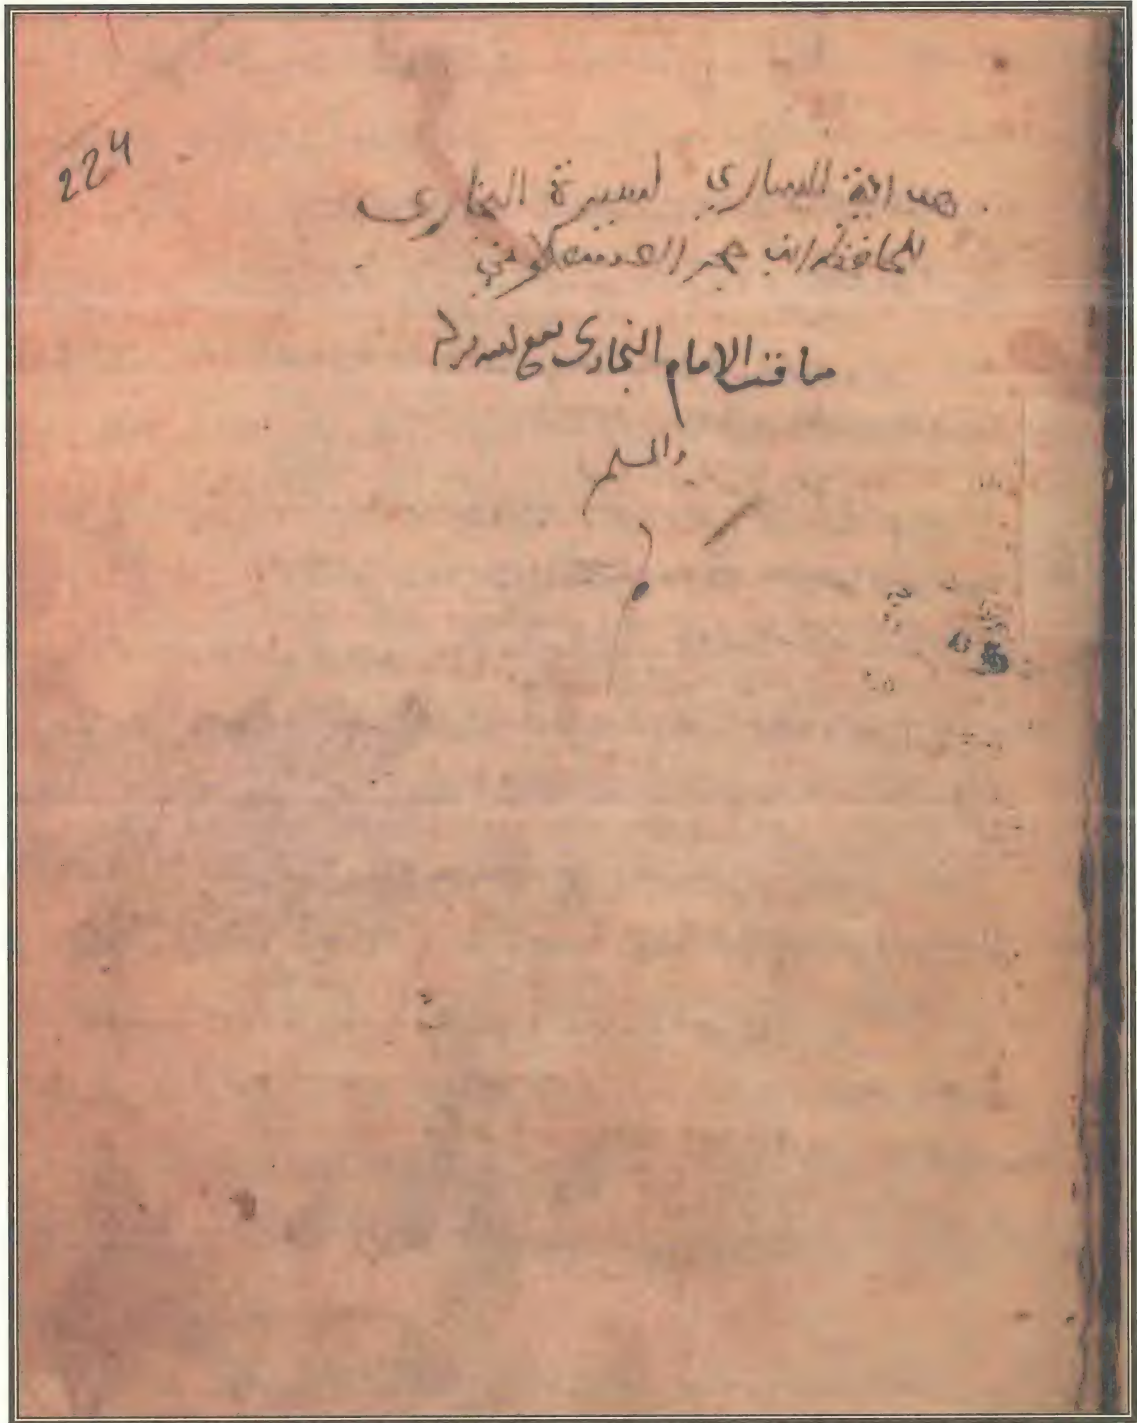 224
هداية الساري لسيرة البخاري
للحافظ ابن حجر العسقلاني
مناقب الامام البخاري
والمسلم